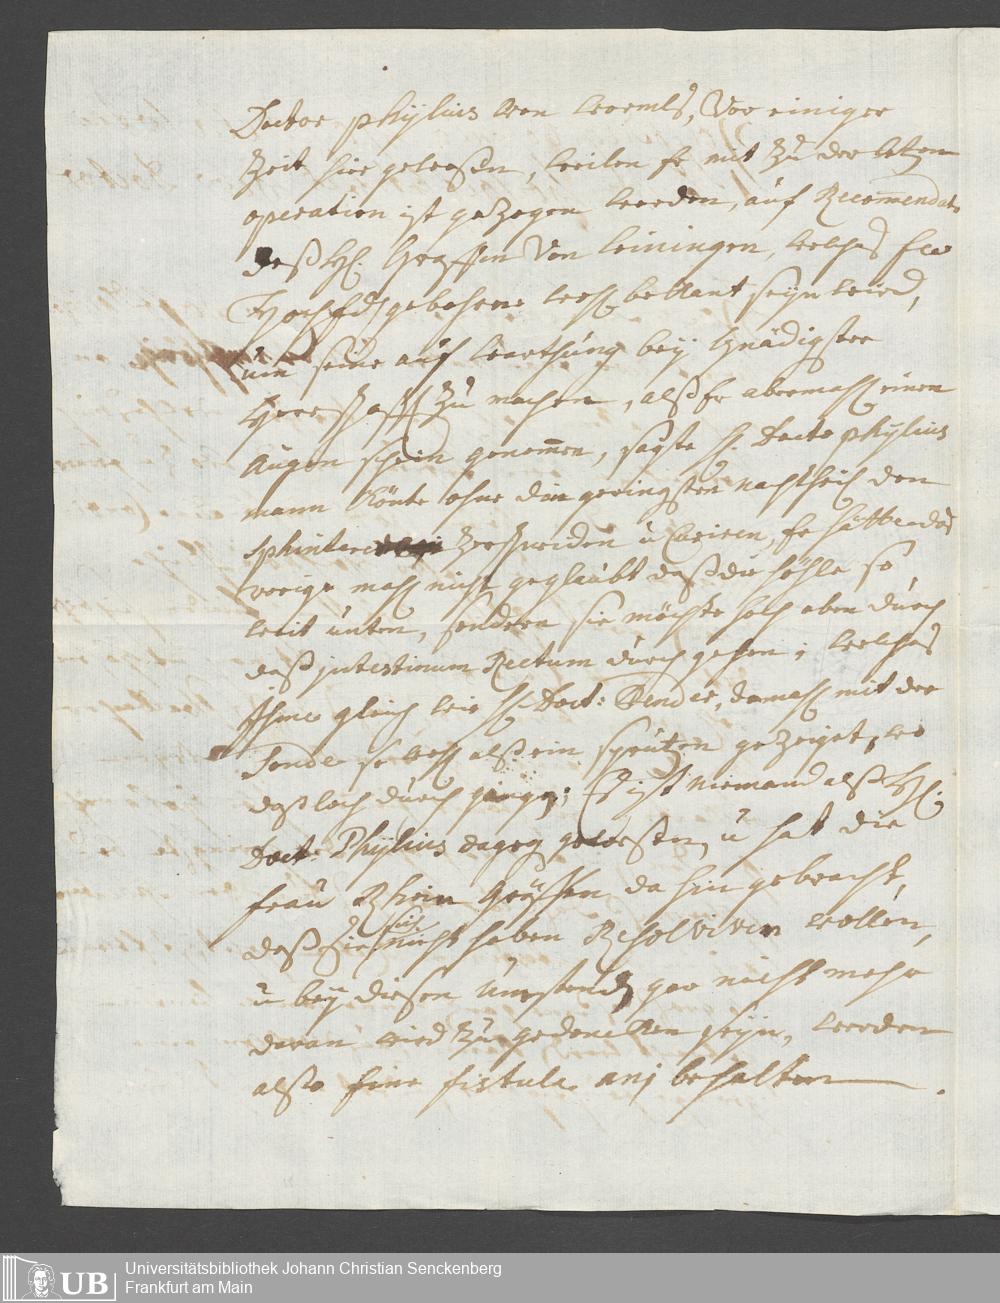 Doctor Phÿlius von Wormbs, Vor einiger
Zeit hier gewessen, weilen Er mit zu der letzen
operation ist gezogen worden, auf Recom̅endat
deß H. Graffen Von Leiningen, welches Ew
Hoch gebohrne wohl bekant seÿn wird,
um seine auf warthung beÿ gnädigster
Herrschafft zu machen, alß Er abermahl einen
Augen schein genom̅en, sagte H. Docto Phÿlius
mann könte ohne den geringsten nachtheil den
sphincter zerschneiden u Curiren, Er hätte das
vorige mahl nicht geglaubt daß die höhle so
weit unten, sondern sie möchte hoch oben durch
daß jntestinum Rectum durch gehen; welches
Ihme gleich wie H. Doct: damahl mit der
Sonde so wohl alß ein sprützen gezeiget, wo
daß loch durch ginge; Es ist niemand alß H.
Doct: Phÿlius dageg gewessen, u hat die
frau Rhein Gräffen da hin gebracht,
daß sie sich nicht haben Resolviren wollen,
u beÿ diesen umständ gar nicht mehr
daran wird zu gedencken seÿn, werden
alßo Eine fistula anj behalten.
Universitätsbibliothek Johann Christian Senckenberg
Frankfurt am Main
UB